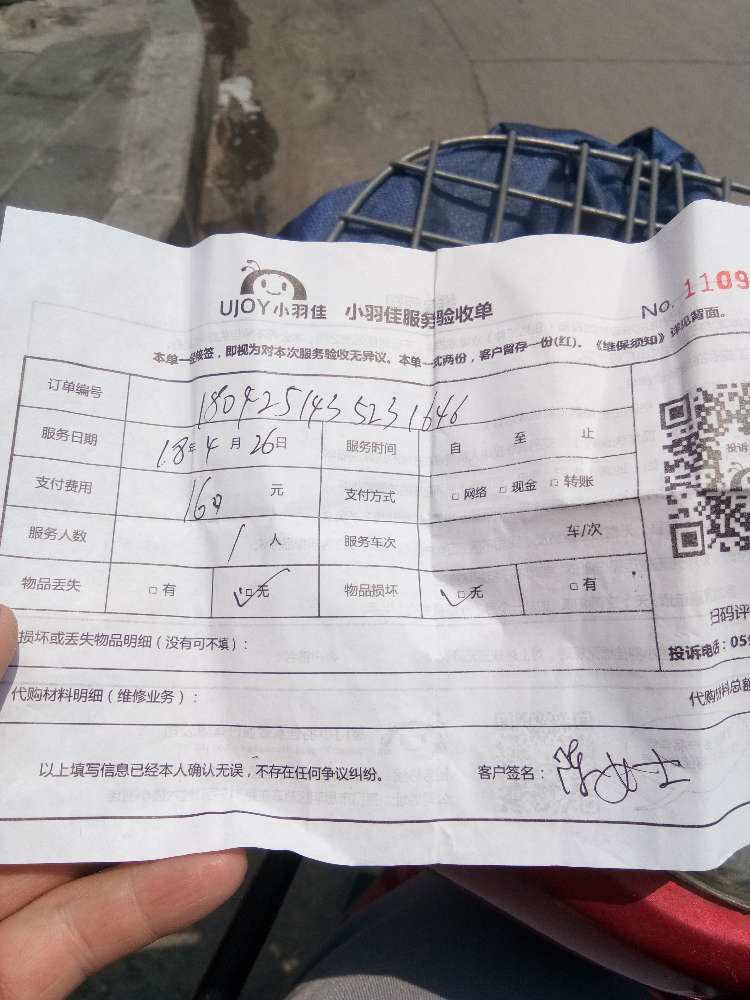 UJOY小羽佳 小羽佳服务验收单
No. 1109
本单一经续签，即视为对本次服务验收无异议。本单一式两份，客户留存一份(红)。《维保须知》详见背面。
订单编号 180425143523 1646
服务日期 18年4月26日 服务时间 自 至 止
支付费用 160元 支付方式 □网络 □现金 □转账
服务人数 1人 服务车次 车/次
物品丢失 □有 □无 物品损坏 □无 □有
投诉
扫码评
投诉电话：059
损坏或丢失物品明细（没有可不填）：
代购材料明细（维修业务）： 代购材料总额
以上填写信息已经本人确认无误，不存在任何争议纠纷。 客户签名： 女士